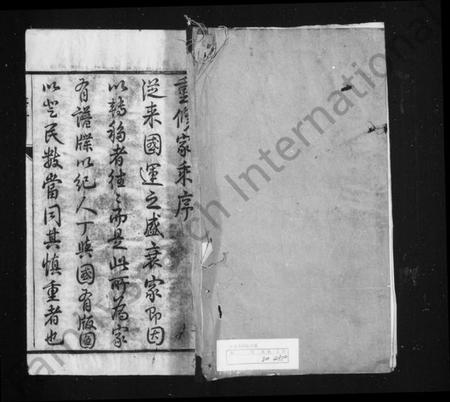 重修家乘序
從来國運之盛衰家即因
以轉移者往々而是此所為家
有譜牒以紀人丁與國有版圖
以登民数當同其慎重者也